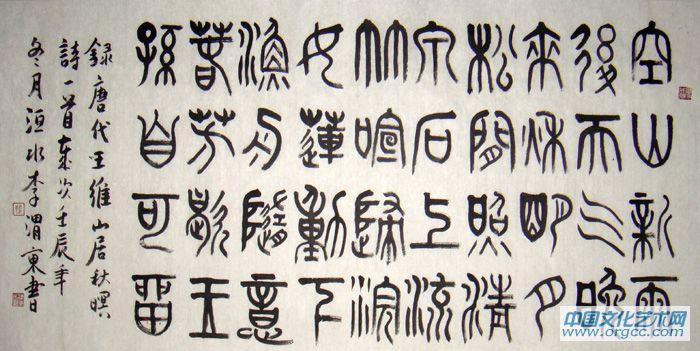 空山新雨
後天气晚
來秋明月
松間照清
泉石上流
竹喧歸浣
女蓮動下
漁舟隨意
春芳歇王
孫自可留
錄唐代王維山居秋暝
詩一首歲次壬辰年
冬月洹水李渭東書
中国文化艺术网
www.orgcc.com